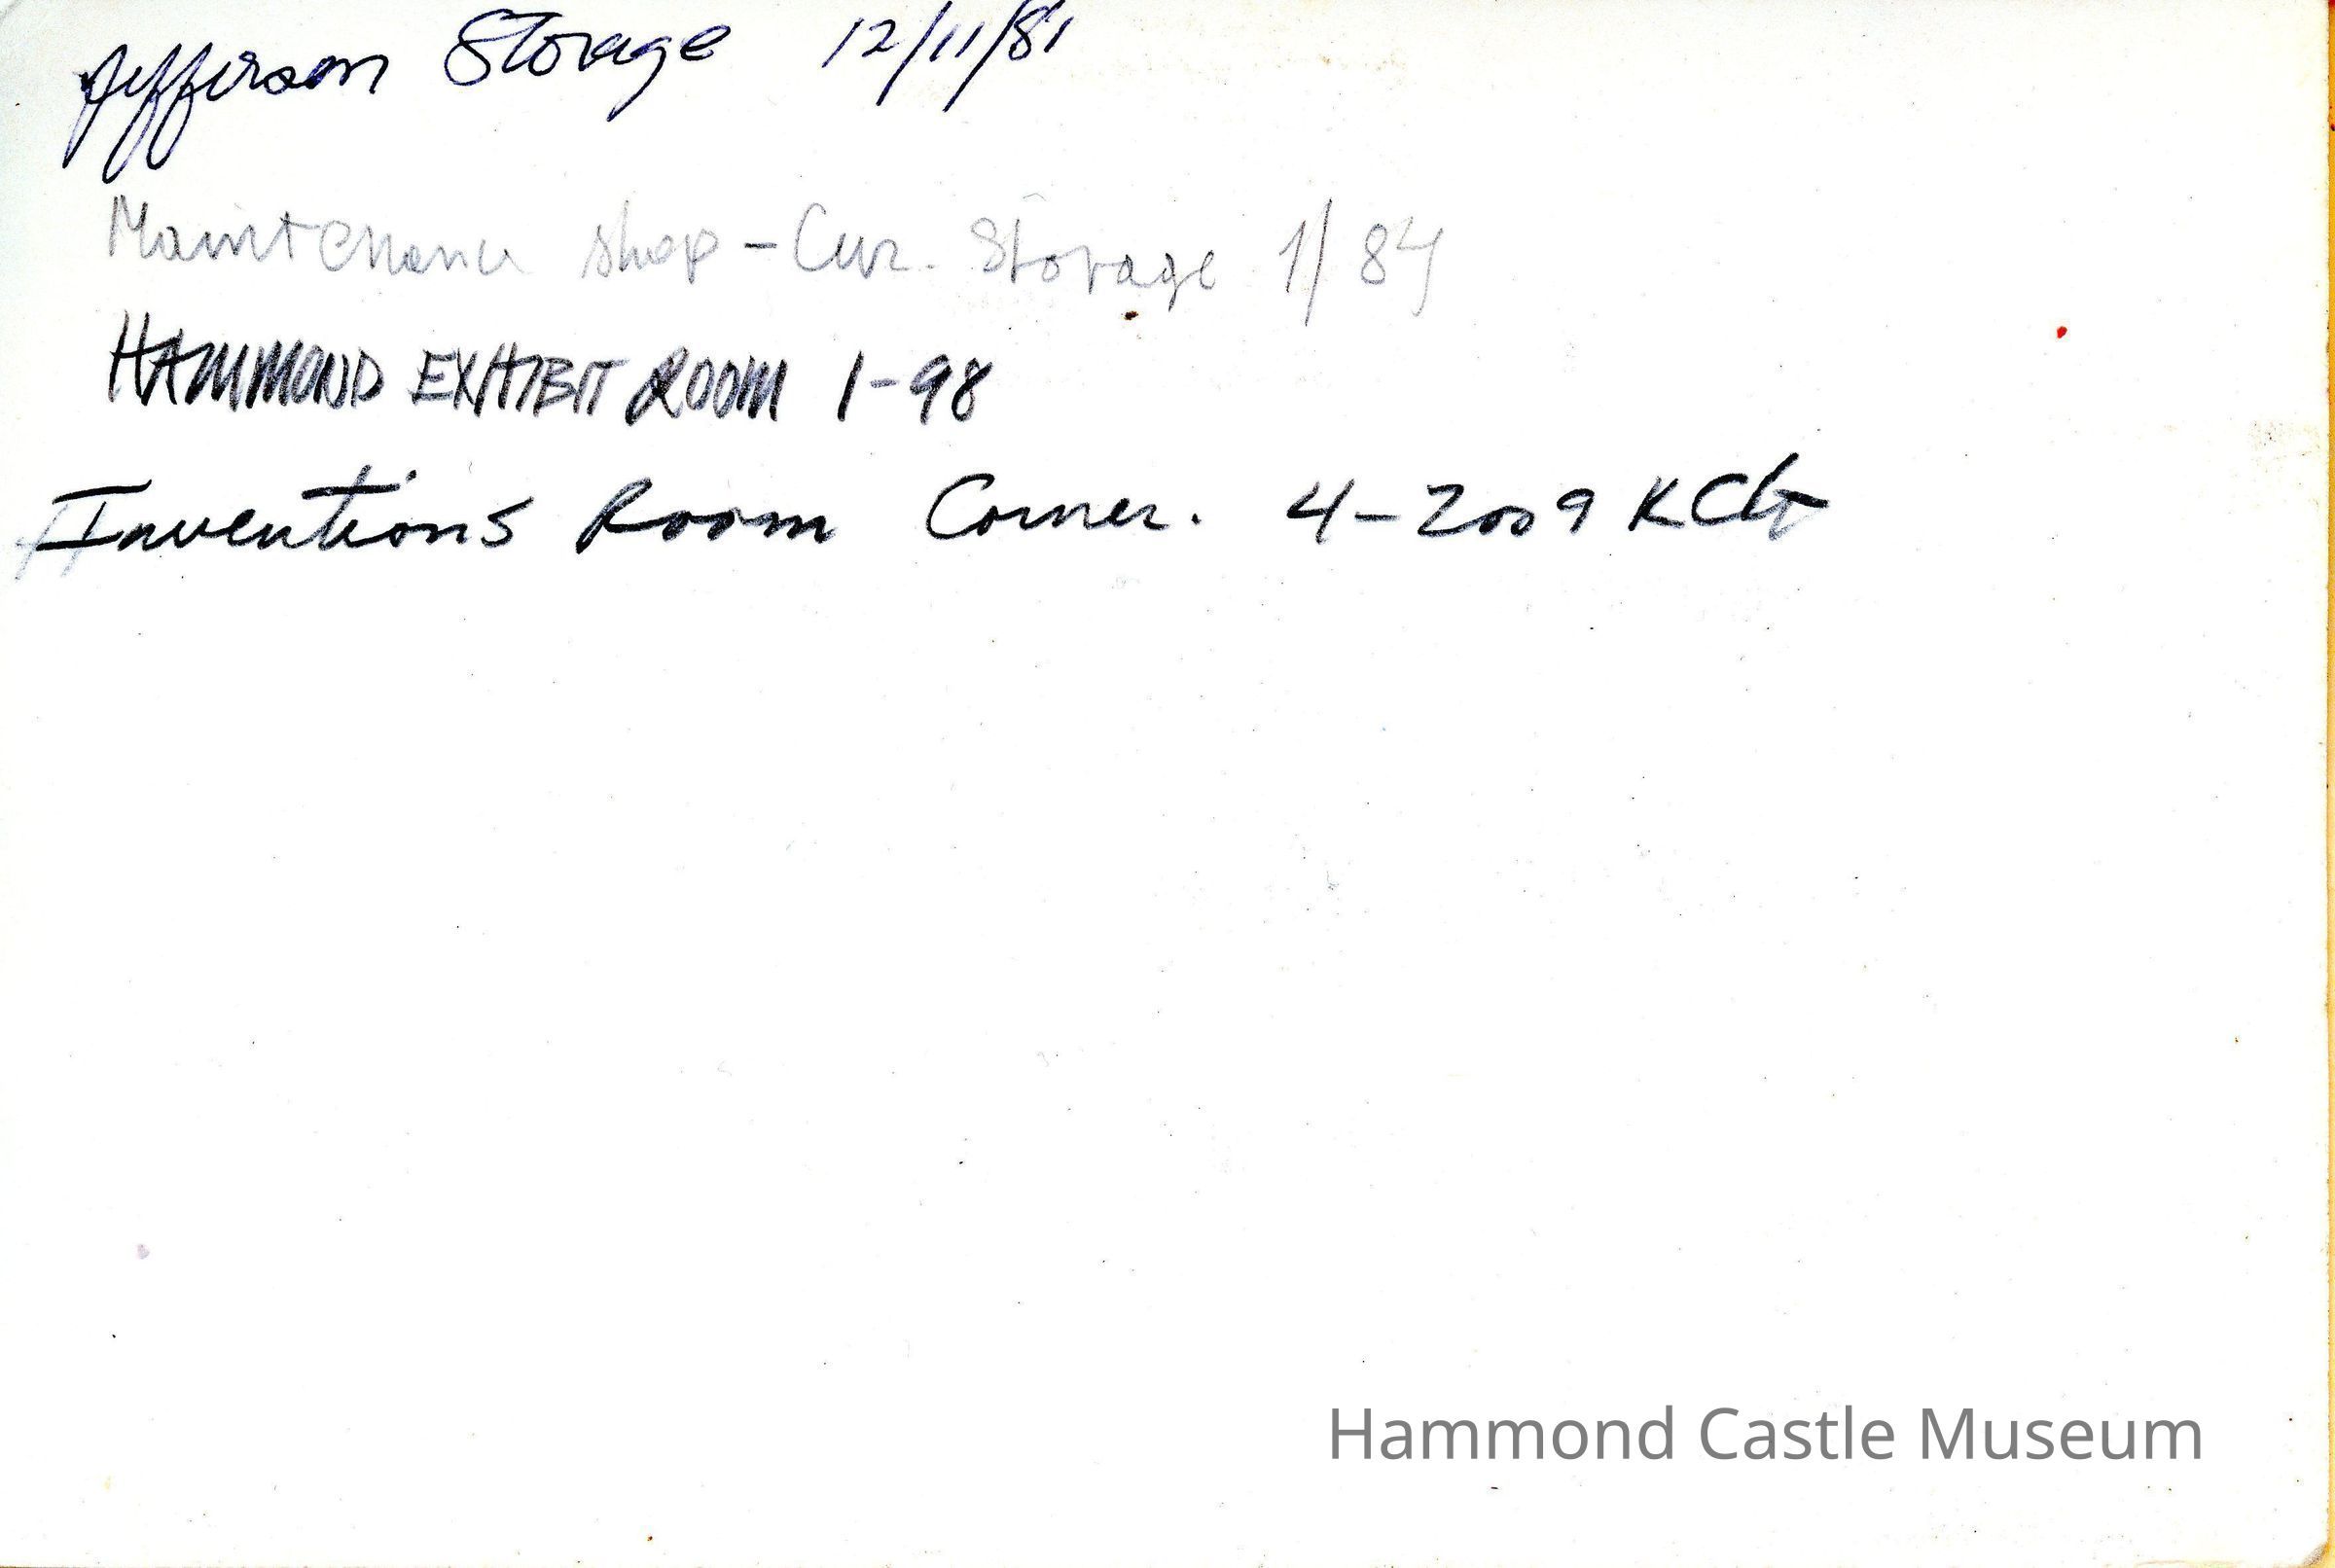 Jefferson Storage 12/11/81
Maintenance shop - Cur. Storage 1/84
HAMMOND EXHIBIT ROOM 1-98
Inventions Room Corner. 4-2009 KCG
Hammond Castle Museum